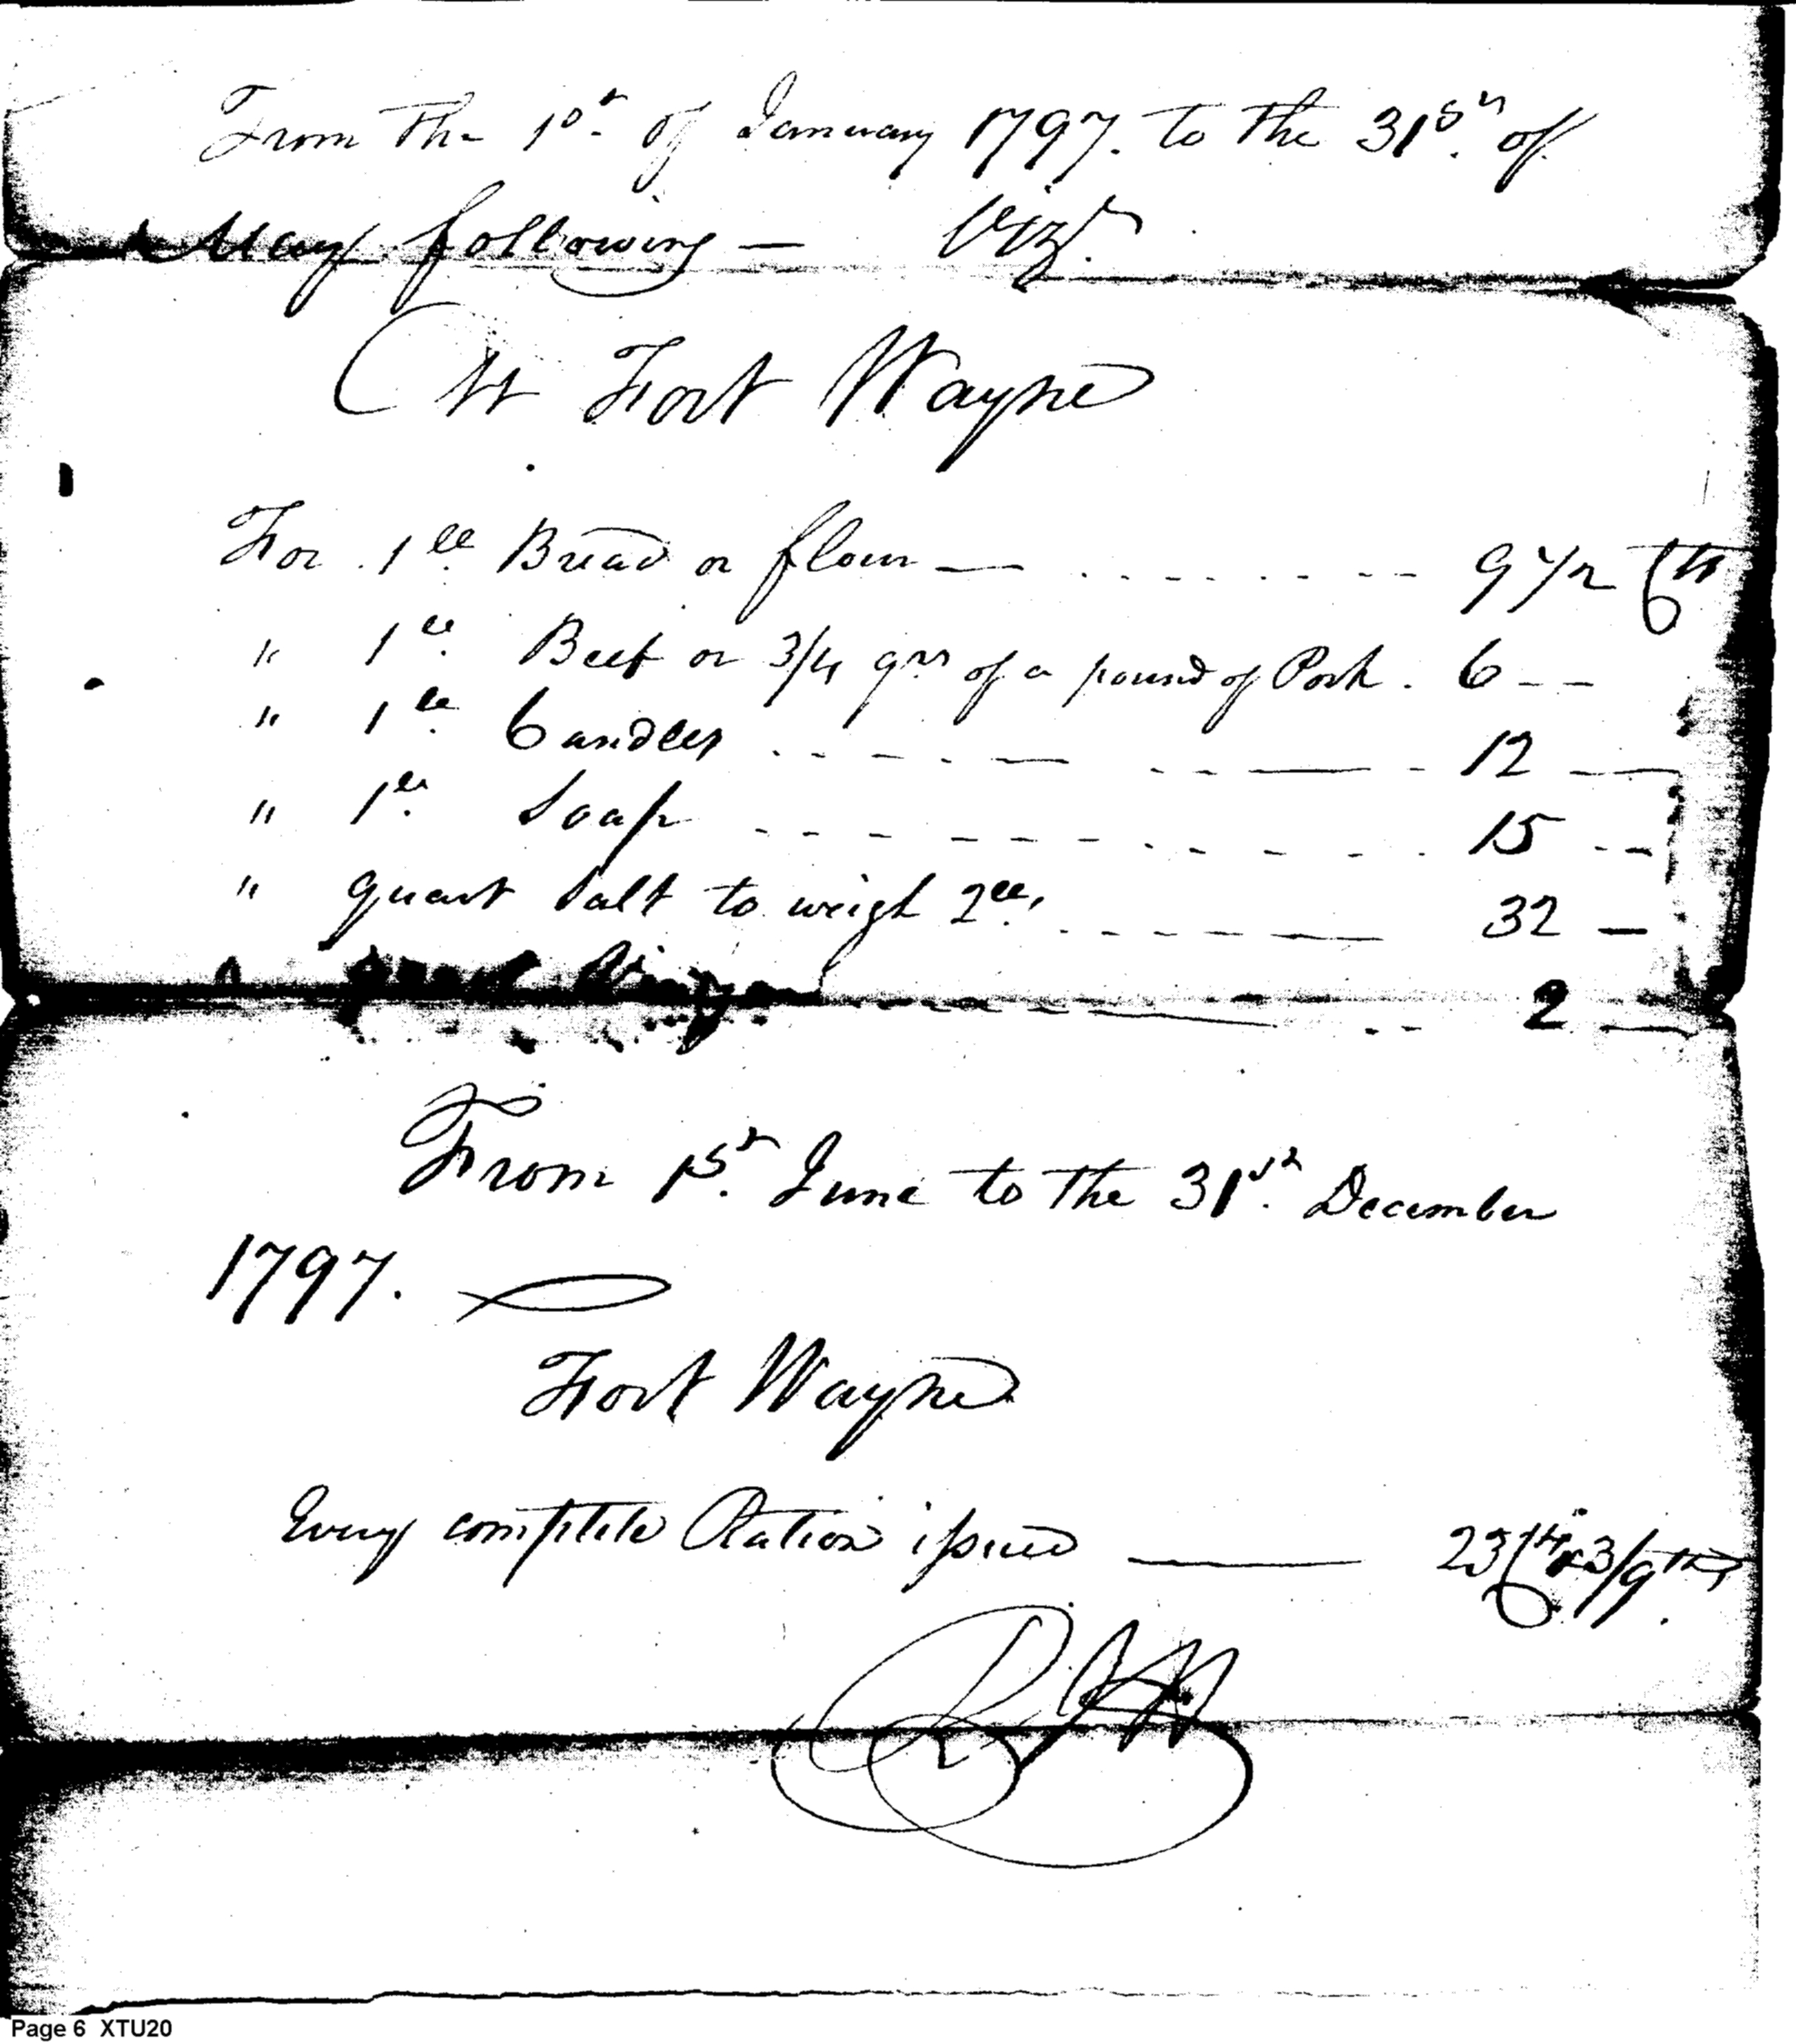 From the 1st of January 1797. to the 31st. of
May following — Vizt.
At Fort Wayne
For 1 lb Bread or flour — . . . . . . . . 9 1/2 Cts
" 1 lb. Beef or 3/4 qrs of a pound of Pork . 6 - -
" 1 lb. Candles . . - - . — . . - — - 12 —
" 1 lb. Soap - - - - - - - . . - - - . 15 - -
" quart Salt to weigh 2 lb, . - - - - - — 32 —
Vinegar - - - - — . . 2 —
From 1st. June to the 31st. December
1797.
Fort Wayne
Every complete Ration issued — 23 Cts 3/9ths.